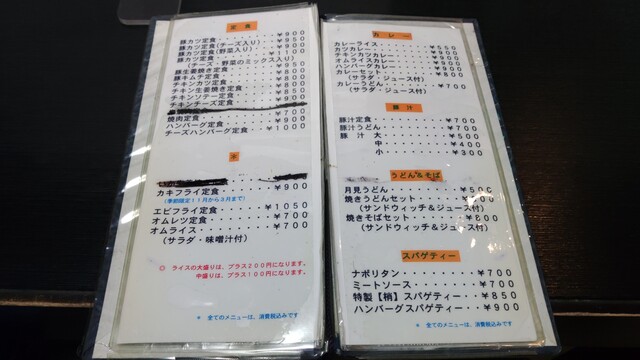 定食
豚カツ定食・・・・・・・・￥９００
豚カツ定食(チーズ入り)・・￥９５０
豚カツ定食(野菜入り)・・・￥９００
豚カツ定食・・・・・・・・￥１１００
(チーズ・野菜のミックス入り)
豚生姜焼き定食・・・・・・￥９５０
豚キムチ定食・・・・・・・￥８００
チキンカツ定食・・・・・・￥８００
チキン生姜焼き定食・・・・￥８００
チキンソテー定食・・・・・￥８５０
チキンチーズ定食・・・・・￥９００
焼肉定食・・・・・・・・・￥７００
ハンバーグ定食・・・・・・￥９００
チーズハンバーグ定食・・・￥１０００
＊
カキフライ定食・・・・・・￥９００
(季節限定１１月から３月まで)
エビフライ定食・・・・・・￥１０５０
オムレツ定食・・・・・・・￥７００
オムライス・・・・・・・・￥７００
(サラダ・味噌汁付)
◎ ライスの大盛りは、プラス２００円になります。
中盛りは、プラス１００円になります。
＊ 全てのメニューは、消費税込みです
カレー
カレーライス・・・・・・・￥５５０
カツカレー・・・・・・・・￥９００
チキンカツカレー・・・・・￥９００
オムライスカレー・・・・・￥９００
ハンバーグカレー・・・・・￥９００
カレーセット・・・・・・・￥８００
(サラダ・ジュース付)
カレーうどん・・・・・・・￥７００
(サラダ・ジュース付)
豚汁
豚汁定食・・・・・・・・・￥７００
豚汁うどん・・・・・・・・￥７００
豚 汁 大・・・・・・・・￥５００
中・・・・・・・・￥４００
小・・・・・・・・￥３００
うどん＆そば
月見うどん・・・・・・・・￥５００
焼きうどんセット・・・・・￥７００
(サンドウィッチ＆ジュース付)
焼きそばセット・・・・・・￥８００
(サンドウィッチ＆ジュース付)
スパゲティー
ナポリタン・・・・・・・・￥７００
ミートソース・・・・・・・￥７００
特製【梢】スパゲティー・・￥８５０
ハンバーグスパゲティー・・￥９００
＊ 全てのメニューは、消費税込みです